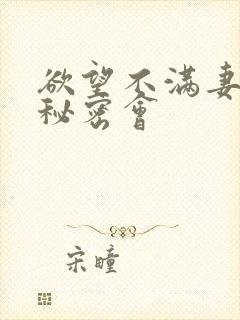 欲望不满妻
秘密會
宋瞳